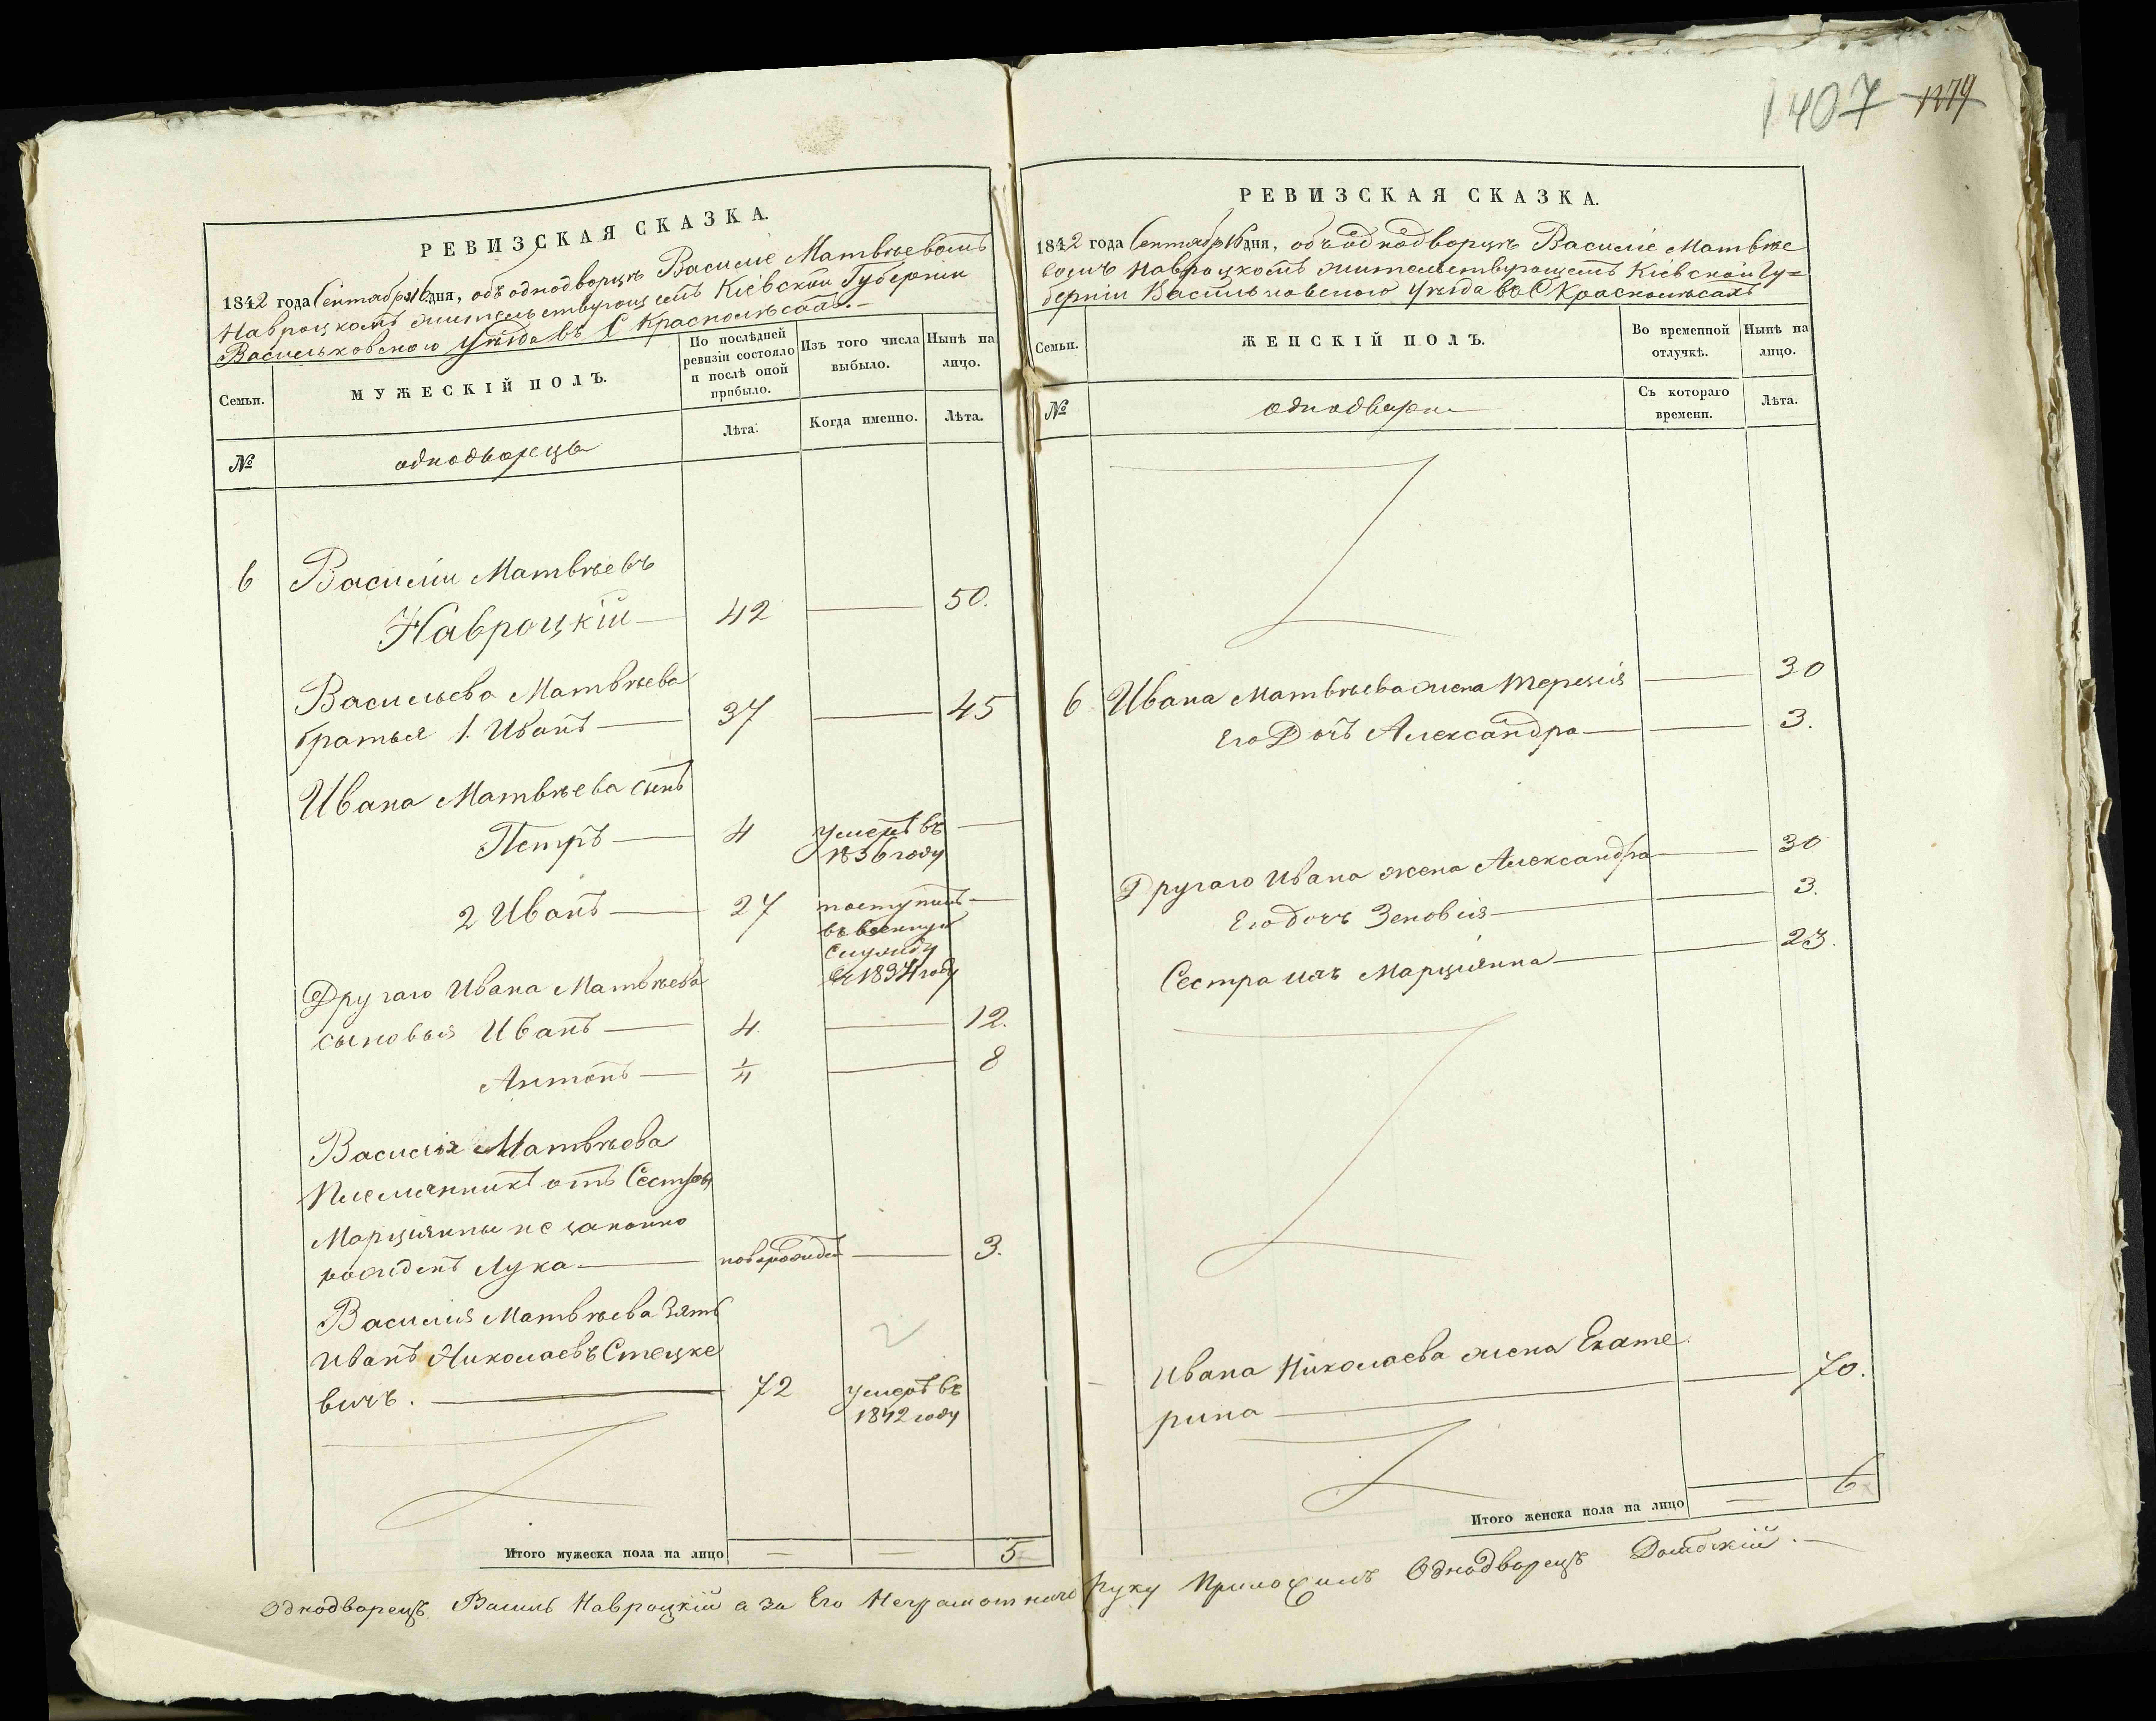 1407 1279
РЕВИЗСКАЯ СКАЗКА.
1842 года Сентября 16 дня, объ однодворцѣ Василіе Матвѣевомъ
Навроцкомъ жительствующемъ Кіевской Губерніи
Васильковскаго уѣзда въ С Краснолѣсахъ.
Семьи.
МУЖЕСКІЙ ПОЛЪ.
По послѣдней ревизіи состояло и послѣ оной прибыло.
Изъ того числа выбыло.
Нынѣ на лицо.
№
однодворецъ
Лѣта.
Когда именно.
Лѣта.
6 Василій Матвѣевъ
Навроцкій 42 50.
Васильева Матвѣева
братья 1. Иванъ 37 45
Ивана Матвѣева сынъ
Петръ 4 умеръ въ 1836 году
2 Иванъ 27 поступилъ въ военную службу въ 1834 году
Другаго Ивана Матвѣева
сыновья Иванъ 4. 12.
Антонъ 1/4 8
Василія Матвѣева
племянникъ отъ Сестры
Марціянны не законно
рожденъ Лука новорожден 3.
Василия Матвѣева зять
Иванъ Николаевъ Стецке
вичъ. 72 умеръ въ 1842 году
Итого мужеска пола на лицо 5
РЕВИЗСКАЯ СКАЗКА.
1842 года Сентября 16 дня, объ однодворцѣ Василіе Матвѣе
вомъ Навроцкомъ жительствующемъ Кіевской Гу=
берніи Васильковского уѣзда въ С Краснолѣсахъ
Семьи.
ЖЕНСКІЙ ПОЛЪ.
Во временной отлучкѣ.
Нынѣ на лицо.
№
однодворки
Съ котораго времени.
Лѣта.
6 Ивана Матвѣева жена Терезія 30
Его Дочь Александра 3.
Другаго Ивана жена Александра 30
Его дочь Зеновія 3.
Сестра ихъ Марціянна 23.
Ивана Николаева жена Екате
рина 70.
Итого женска пола на лицо 6
Однодворецъ Василь Навроцкій а за Его Неграмотнаго руку Приложилъ Однодворецъ